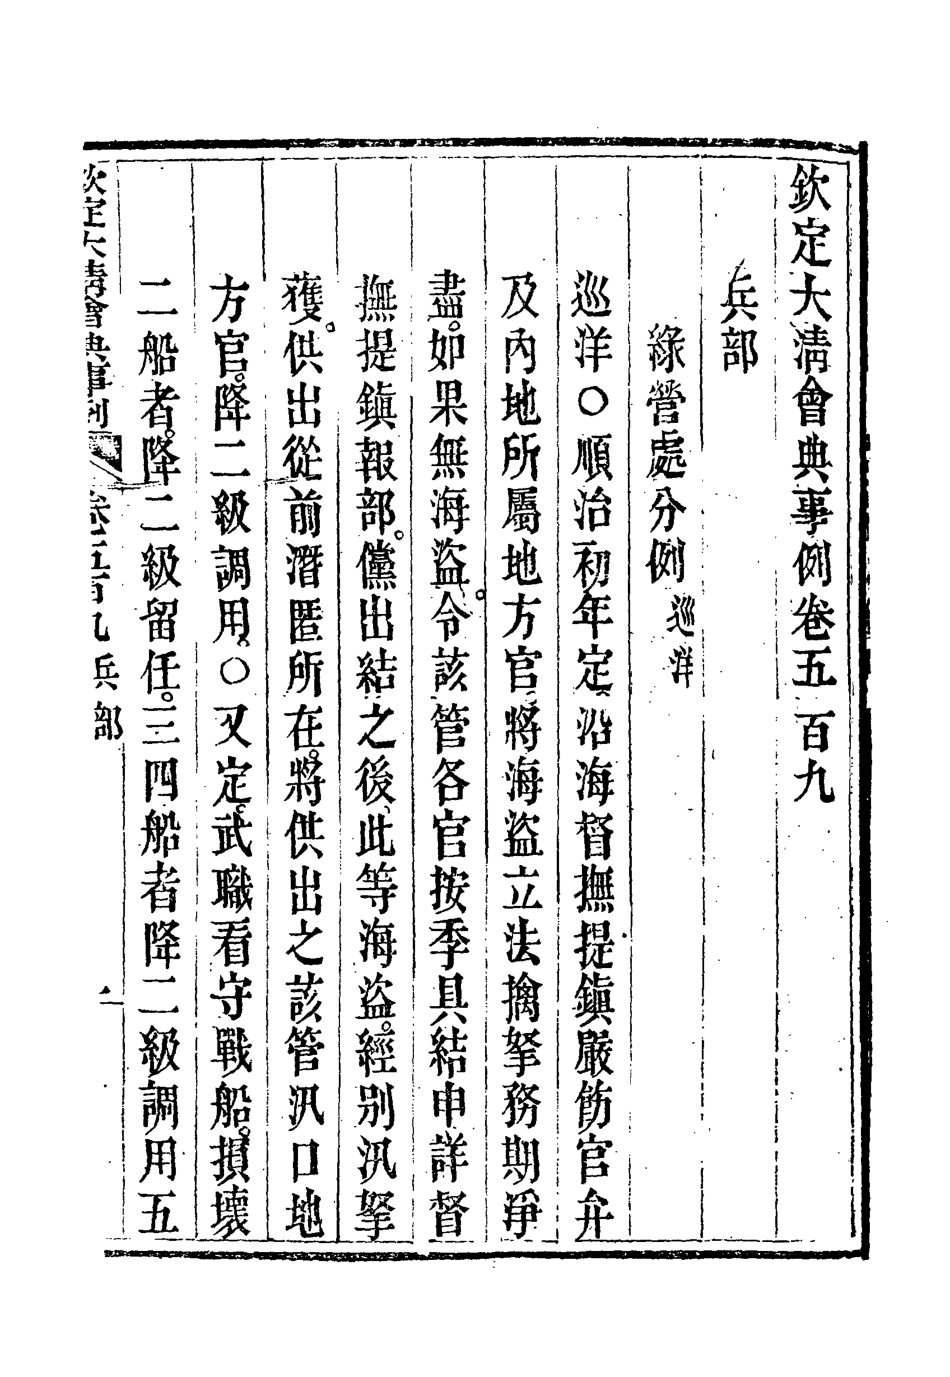 欽定大淸會典事例卷五百九
兵部
綠營處分例 巡洋
巡洋○順治初年定沿海督撫提鎮嚴飭官弁
及內地所屬地方官將海盜立法擒拏務期淨
盡。如果無海盜。令該管各官按季具結申詳督
撫提鎮報部。儻出結之後、此等海盜。經別汛拏
獲。供出從前潛匿所在。將供出之該管汛口地
方官。降二級調用。○又定。武職看守戰船。損壞
二船者。降二級留任。三四船者降二級調用五
欽定大淸會典事例 卷五百九 兵部 一